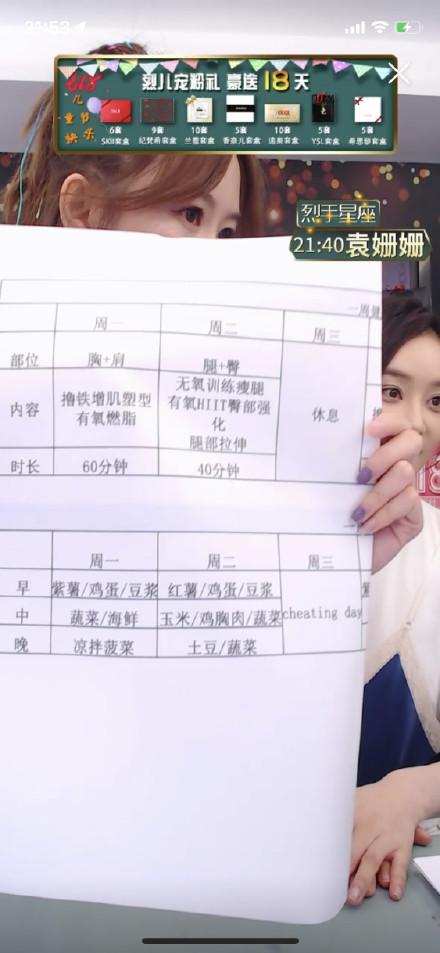 21:53
618
儿
童节
快乐
烈儿宠粉礼 豪送18天
6套 9套 10套 5套 10套 5套 5套
SKII套盒 纪梵希套盒 兰蔻套盒 香奈儿套盒 迪奥套盒 YSL套盒 希思黎套盒
烈于星座
21:40袁姗姗
一周健
周一 周二 周三
部位 胸+肩 腿+臀
内容 撸铁增肌塑型
有氧燃脂
无氧训练瘦腿
有氧HIIT臀部强
化
腿部拉伸
休息
时长 60分钟 40分钟
周一 周二 周三
早 紫薯/鸡蛋/豆浆 红薯/鸡蛋/豆浆
中 蔬菜/海鲜 玉米/鸡胸肉/蔬菜 cheating day
晚 凉拌菠菜 土豆/蔬菜